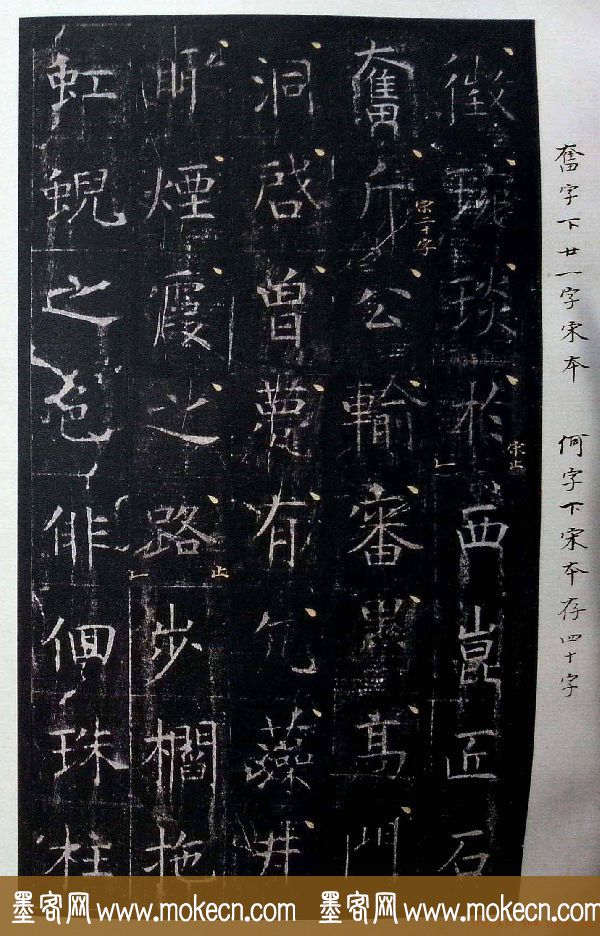 奮字下廿一字宋本 何字下宋本存四十字
徵琬琰於西崑匠石
宋止
宋二十字
奮斤公輸審髙門
洞啓曾甍有伉藻井
煙霞之路步櫩拖
止
虹蜺之色俳佪珠柱
墨客网 www.mokecn.com 墨客网 www.mokecn.com